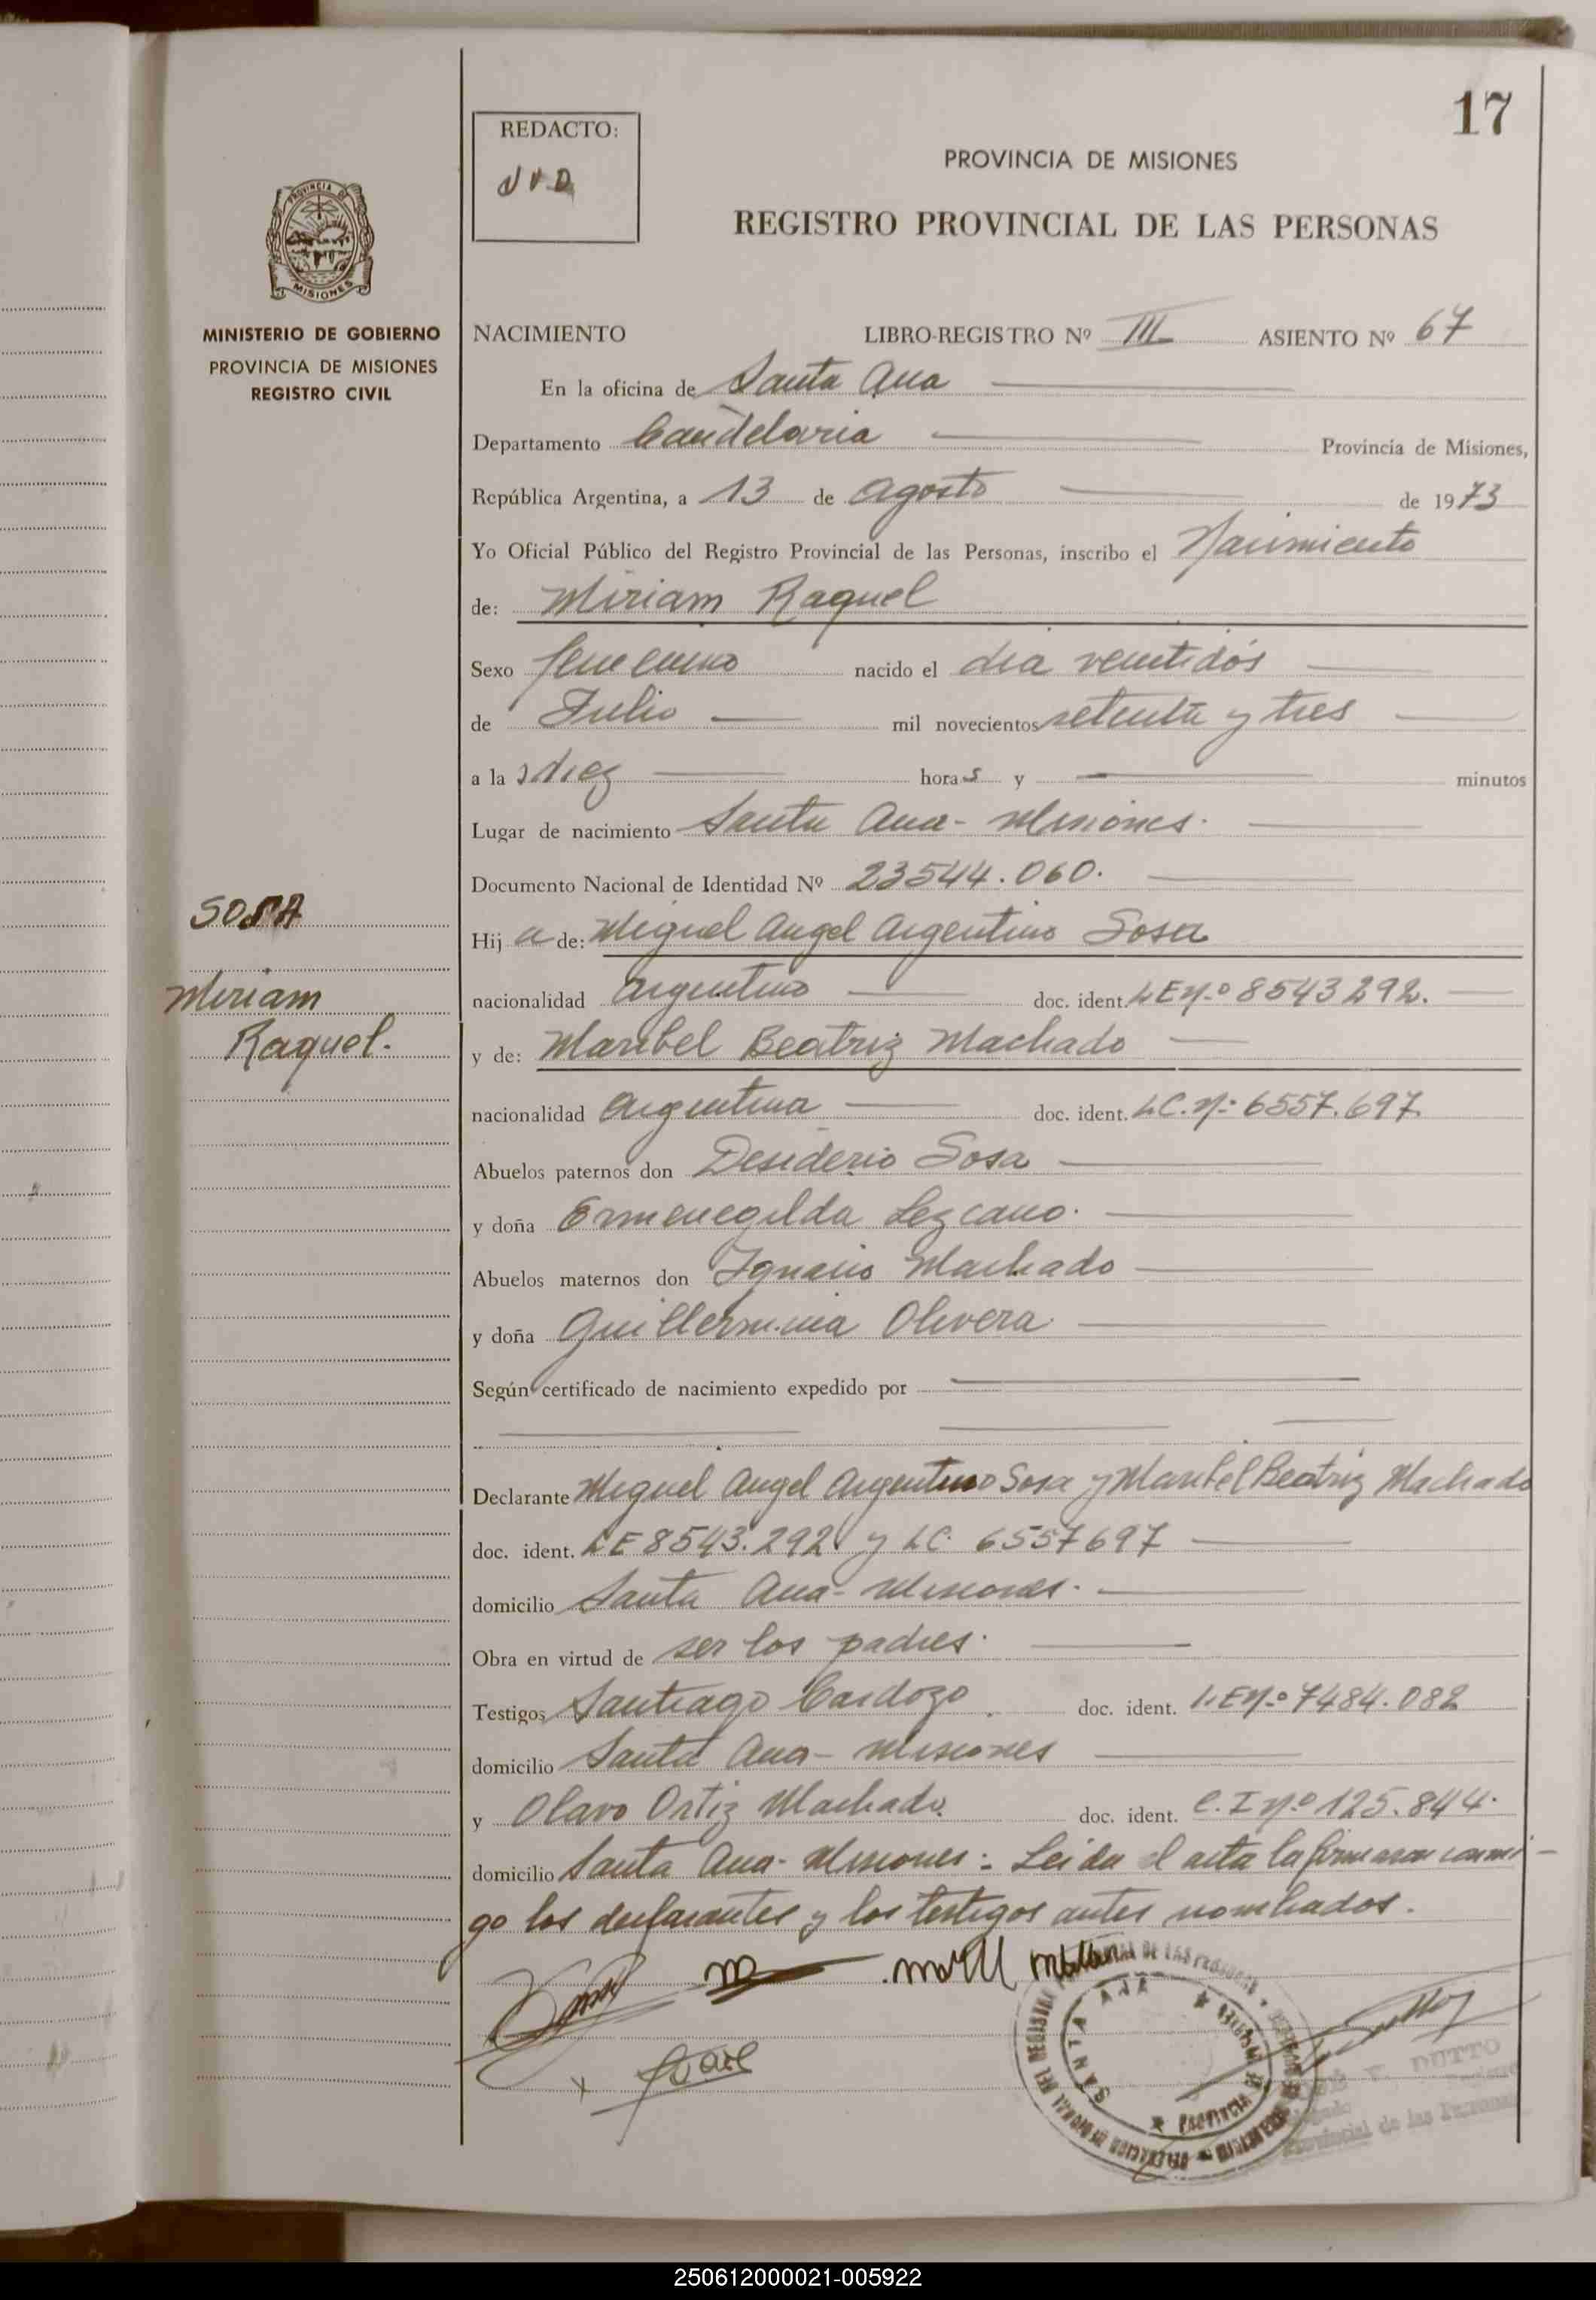 17
REDACTO:
J.V.D.
PROVINCIA DE MISIONES
REGISTRO PROVINCIAL DE LAS PERSONAS
PROVINCIA DE
MISIONES
MINISTERIO DE GOBIERNO
PROVINCIA DE MISIONES
REGISTRO CIVIL
NACIMIENTO LIBRO-REGISTRO Nº III ASIENTO Nº 67
En la oficina de Santa Ana
Departamento Candelaria Provincia de Misiones,
República Argentina, a 13 de agosto de 1973
Yo Oficial Público del Registro Provincial de las Personas, inscribo el Nacimiento
de: Miriam Raquel
Sexo femenino nacido el día veintidós
de Julio mil novecientos setenta y tres
a la s diez horas y minutos
Lugar de nacimiento Santa Ana - Misiones.
Documento Nacional de Identidad Nº 23544.060.
SOSA
Miriam
Raquel.
Hij a de: Miguel Angel Argentino Sosa
nacionalidad Argentino doc. ident. LE nº 8543292.
y de: Maribel Beatriz Machado
nacionalidad Argentina doc. ident. LC. nº 6557.697
Abuelos paternos don Desiderio Sosa
y doña Ermenegilda Lezcano.
Abuelos maternos don Ignacio Machado
y doña Guillermina Olivera
Según certificado de nacimiento expedido por
Declarante Miguel Angel Argentino Sosa y Maribel Beatriz Machado
doc. ident. LE 8543.292 y LC. 6557697
domicilio Santa Ana - Misiones.
Obra en virtud de ser los padres.
Testigos Santiago Cardozo doc. ident. LE nº 7484.082
domicilio Santa Ana - Misiones
y Olavo Ortiz Machado doc. ident. C.I nº 125.844.
domicilio Santa Ana - Misiones: Leída el acta la firmaron conmi-
go los declarantes y los testigos antes nombrados.
SANTA ANA
PROVINCIA DE MISIONES
V. DUTTO
Provincial de las Personas
250612000021-005922